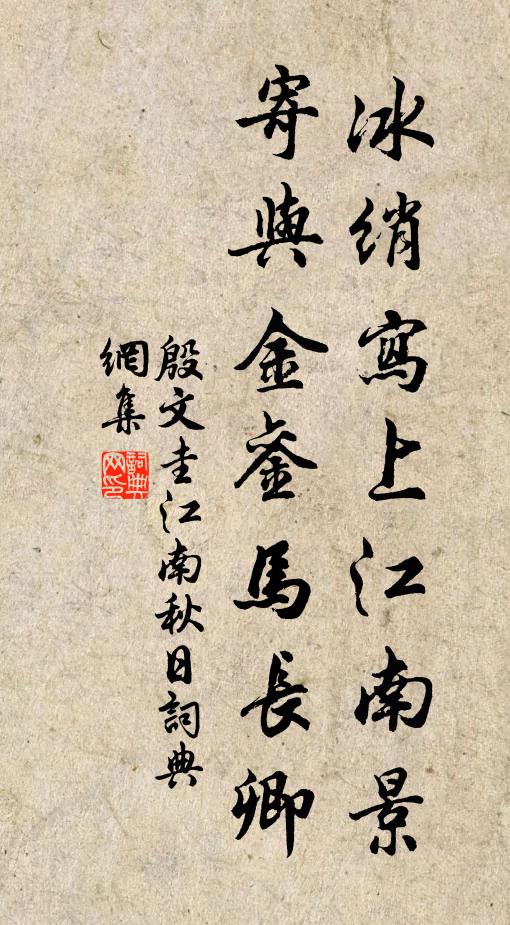 冰綃寫上江南景
寄與金鑾馬長卿
殷文圭江南秋日詞典
網集
詞典網印